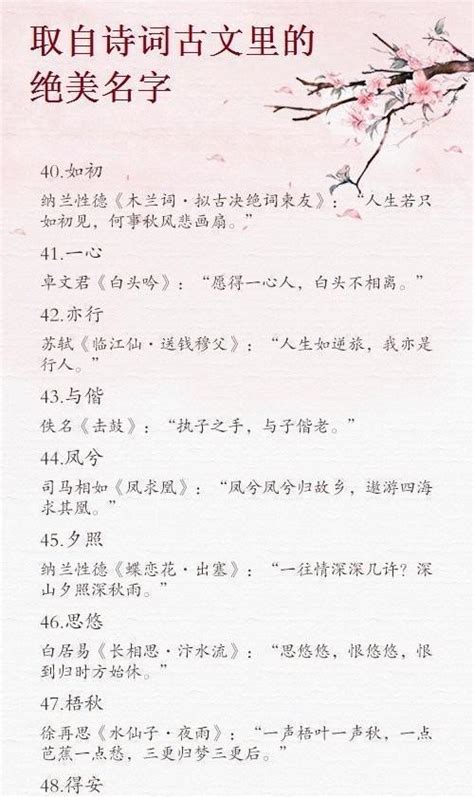 取自诗词古文里的
绝美名字
40.如初
纳兰性德《木兰词·拟古决绝词柬友》：“人生若只
如初见，何事秋风悲画扇。”
41.一心
卓文君《白头吟》：“愿得一心人，白头不相离。”
42.亦行
苏轼《临江仙·送钱穆父》：“人生如逆旅，我亦是
行人。”
43.与偕
佚名《击鼓》：“执子之手，与子偕老。”
44.凤兮
司马相如《凤求凰》：“凤兮凤兮归故乡，遨游四海
求其凰。”
45.夕照
纳兰性德《蝶恋花·出塞》：“一往情深深几许？深
山夕照深秋雨。”
46.思悠
白居易《长相思·汴水流》：“思悠悠，恨悠悠，恨
到归时方始休。”
47.梧秋
徐再思《水仙子·夜雨》：“一声梧叶一声秋，一点
芭蕉一点愁，三更归梦三更后。”
48.得安